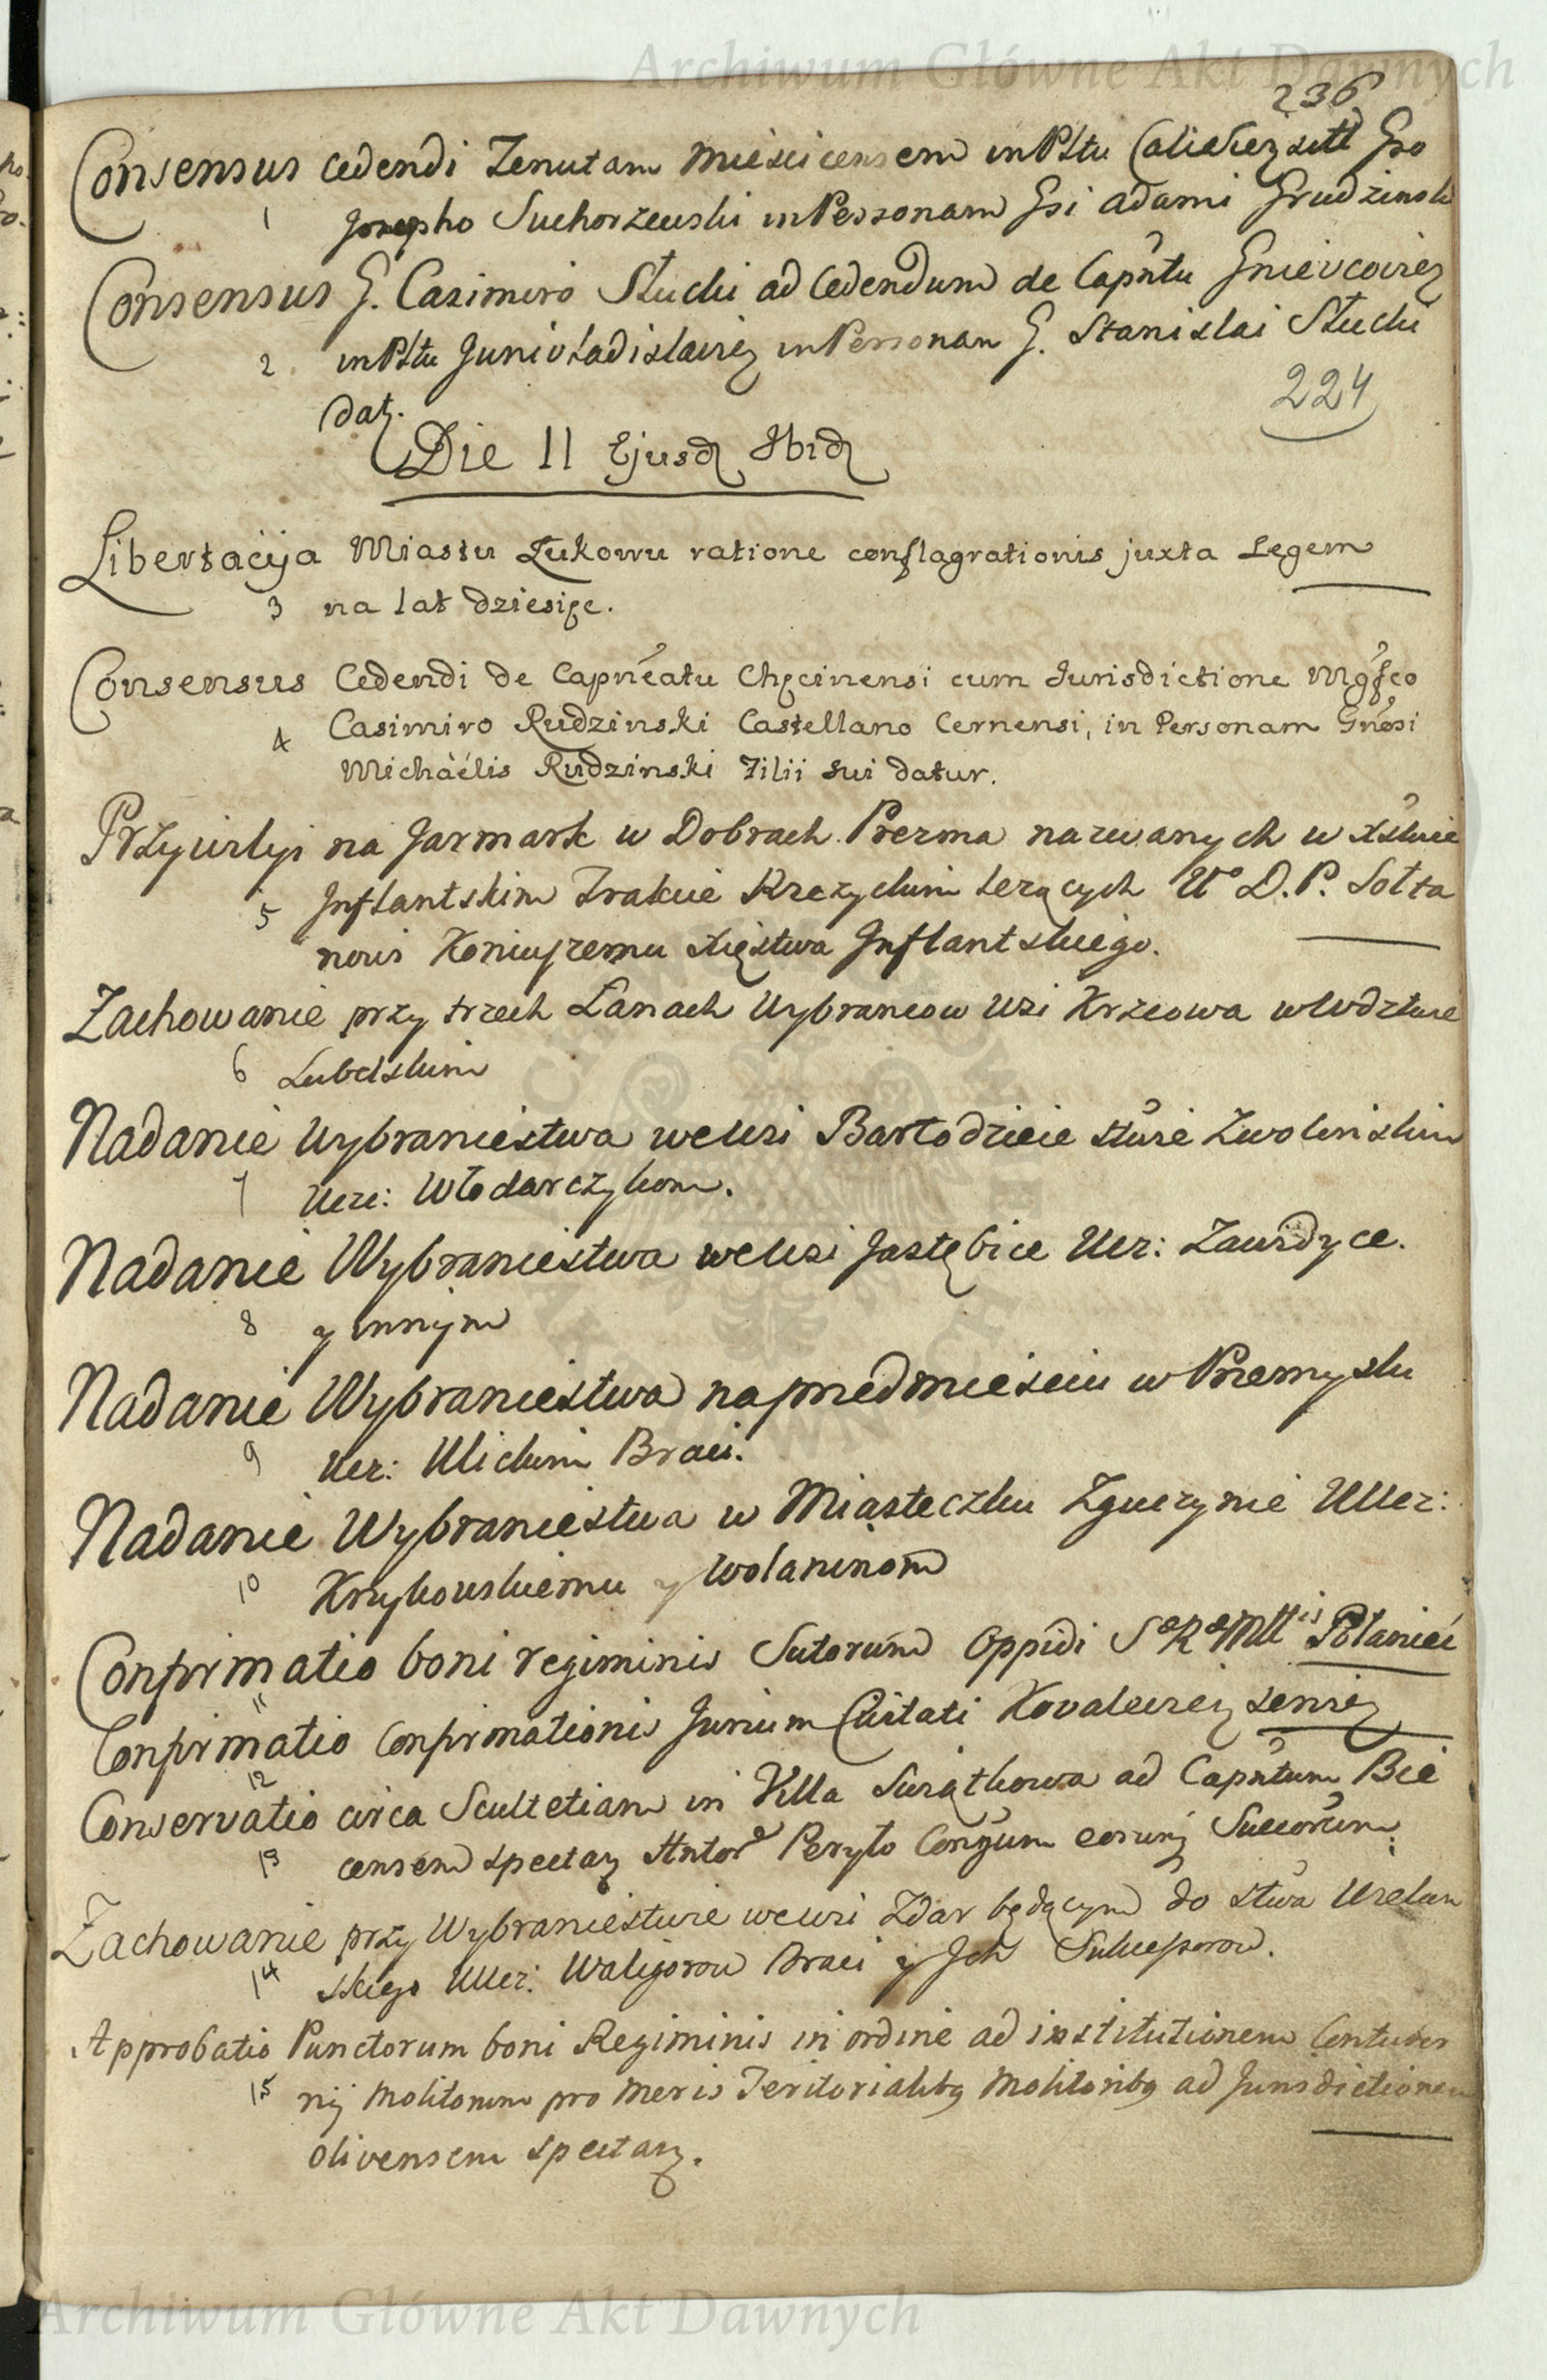 Archiwum Główne Akt Dawnych
236
Consensus cedendi Tenutam Mieścicensem in Pttu
1 Josepho Suchorzewski in Personam Gsi Adami Grudzinski
Consensus G. Casimiro Słucki ad Cedendum de Capńtu
2 in Pttu Junivladislaviez in Personam G. Stanislai Słucki
224
dat.
Die 11 Ejusd
Libertacija Miastu Łukowu ratione conflagrationis juxta Legem
3 na lat dziesięc.
Consensus Cedendi de Capneatu Chęcinensi cum Jurisdictione Mgfco
4 Casimiro Rudzinski Castellano Cernensi, in Personam Gnosi
Michaëlis Rudzinski Filii sui datur.
Przywilyi na Jarmark w Dobrach Prezma nazwanych w Xstwie
5 Inflantskim Trakcie Rzezyckim lezących Uo D. P. Sołta
nowi Koniuszemu Xięstwa Inflantskiego.
Zachowanie przy trzech Łanach Wybrancow Wsi Krzcowa w Wdztwie
6 Lubelskim
Nadanie Wybraniectwa we Wsi Bartodzieie stwie Zwolinskim
7 Ucz: Włodarczykom.
Nadanie Wybraniectwa we Wsi Jastębice Ucz: Zawidyce.
8 y innym
Nadanie Wybraniectwa na przedmiesciu w Przemyslu
9 Ucz: Ulickim Braci.
Nadanie Wybraniectwa w Miasteczku Zguczynie UUcz:
10 Krzykowskiemu y Wolaninom
Confirmatio boni regiminis Sutorum Oppidi S R Mttis Połanieć
11
Confirmatio Confirmationis Jurium Civitati
12
Conservatio circa Scultetiam in Villa Swiątkowa ad Capńtum Bie
13 censem spectan Antor Peryło Conjum eorunq Succorum.
Zachowanie przy Wybraniectwie we Wsi Zdar będącym do stwa Uzelan
14 skiego UUcz: Waligorow Braci y Ich Sukcessorow.
Approbatio Punctorum boni Regiminis in ordine ad institutionem Contuber
15 nij Molitorum pro Meris Teritorialibq Molitoribq ad Jurisdictionem
Olivensem spectan.
Archiwum Główne Akt Dawnych